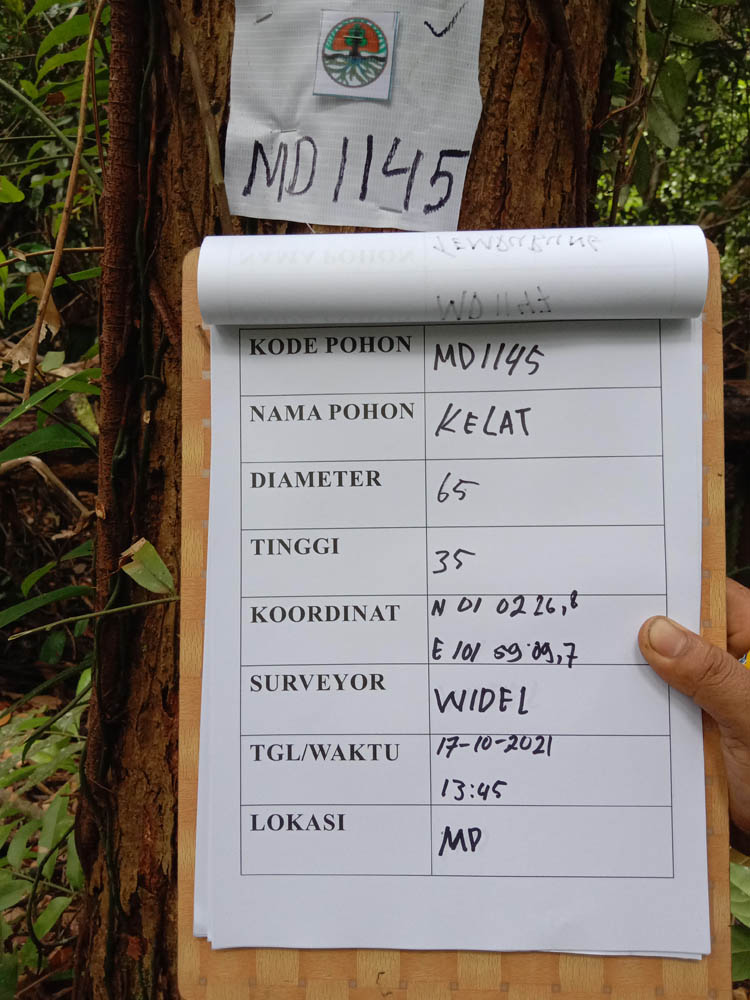 MD1145
KODE POHON MD1145
NAMA POHON KELAT
DIAMETER 65
TINGGI 35
KOORDINAT N 01 02 26,8
E 101 59 09,7
SURVEYOR WIDEL
TGL/WAKTU 17-10-2021
13:45
LOKASI MD